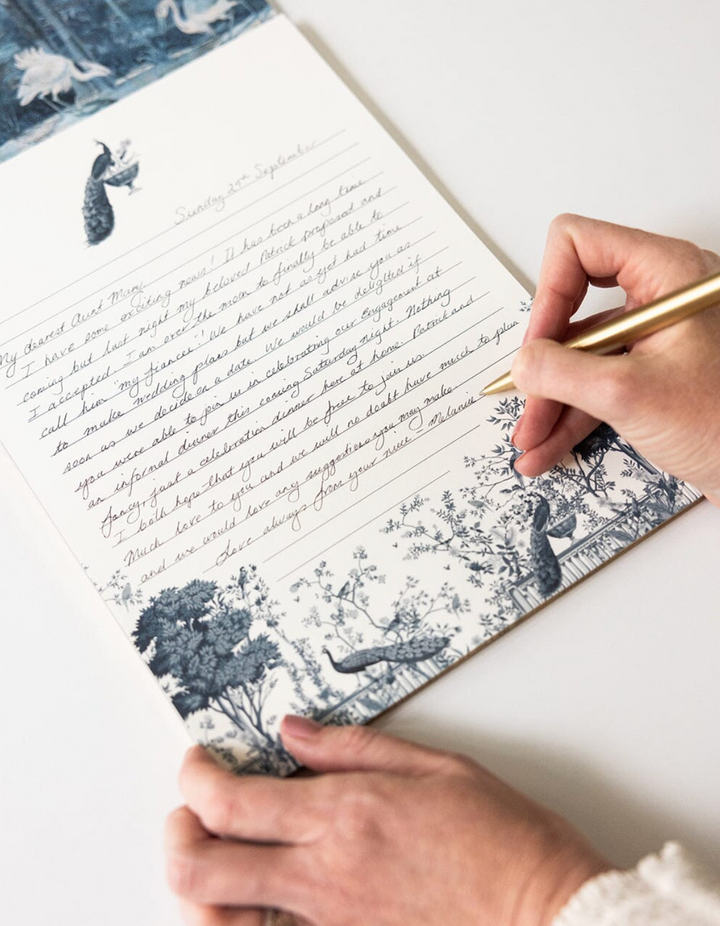 Sunday 29th September
My dearest Aunt Mary
I have some exciting news! It has been a long time
coming but last night my beloved Patrick proposed and
I accepted. I am over the moon to finally be able to
call him 'my fiancee'! We have not as yet had time
to make wedding plans but we shall advise you as
soon as we decide on a date. We would be delighted if
you were able to join us in celebrating our Engagement at
an informal dinner this coming Saturday night. Nothing
fancy - just a celebration dinner here at home. Patrick and
I both hope that you will be free to join us.
Much love to you and we will no doubt have much to plan
and we would love any suggestions you may make
Love always from your niece - Melanie